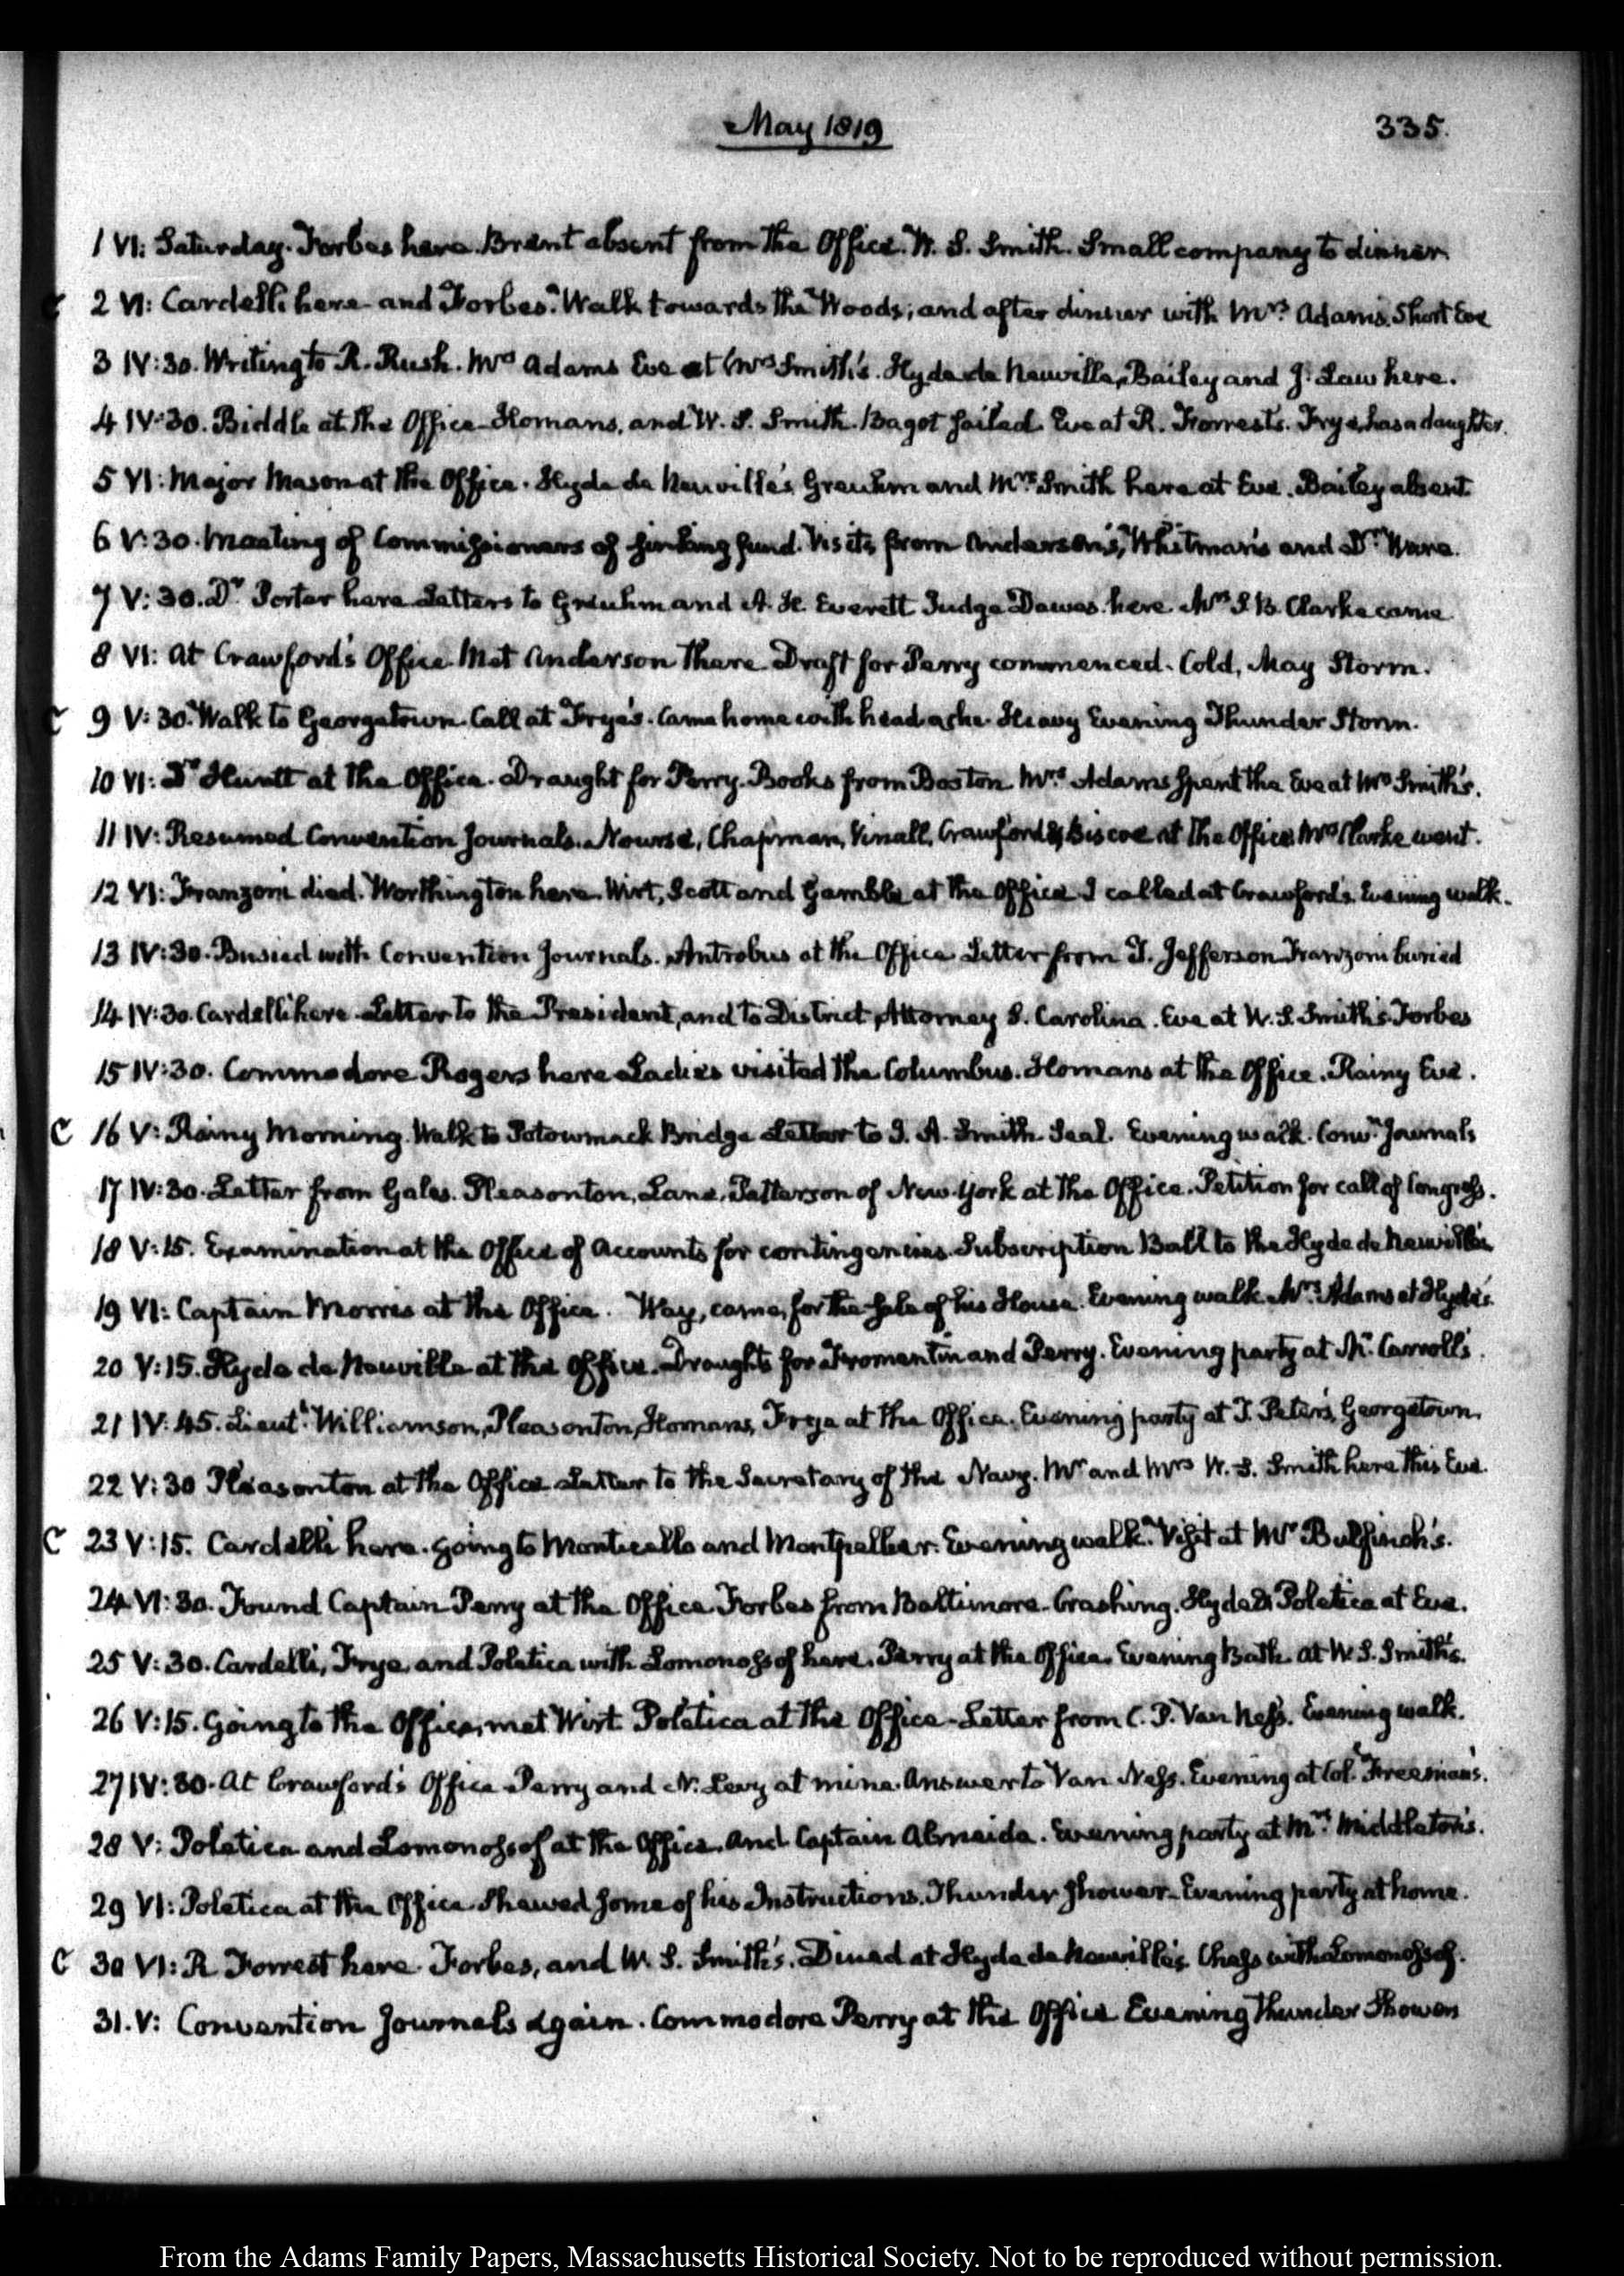 May 1819
335.
1 VI: Saturday. Forbes here. Brent absent from the Office. W. S. Smith. Small company to dinner.
C 2 VI: Cardelli here and Forbes. Walk towards the Woods; and after dinner with Mrs. Adams. Short Eve
3 IV:30. Writing to R. Rush. Mrs Adams Eve at Mrs Smith's. Hyde de Neuville, Bailey and J. Law here.
4 IV:30. Biddle at the Office. Homans, and W. S. Smith. Bagot sailed. Eve at R. Forrest's. Frye, has a daughter.
5 VI: Major Mason at the Office. Hyde de Neuville's Greuhm and Mrs. Smith here at Eve. Bailey absent
6 V:30. Meeting of Commissioners of sinking fund. Visits from Anderson's, Whitman's and Dr. Ware.
7 V:30. Dr Porter here Letters to Greuhm and A. H. Everett Judge Dawes here Mrs S. B. Clarke came
8 VI: At Crawford's Office Met Anderson there Draft for Perry commenced. Cold, May Storm.
C 9 V:30. Walk to Georgetown. Call at Frye's. Came home with head ache. Heavy Evening Thunder Storm.
10 VI: Dr Huntt at the Office. Draught for Perry. Books from Boston Mrs. Adams spent the Eve at Mrs Smith's.
11 IV: Resumed Convention Journals. Nourse, Chapman, Vinall, Crawford & Biscoe at the Office. Mrs Clarke went.
12 VI: Franzoni died. Worthington here. Wirt, Scott and Gamble at the Office I called at Crawford's. Evening walk.
13 IV:30. Busied with Convention Journals. Antrobus at the Office Letter from T. Jefferson Franzoni buried
14 IV:30. Cardelli here Letter to the President, and to District Attorney S. Carolina. Eve at W. S. Smith's Forbes
15 IV:30. Commodore Rogers here Ladies visited the Columbus. Homans at the Office. Rainy Eve.
C 16 V: Rainy Morning. Walk to Potowmack Bridge Letter to J. A. Smith Seal. Evening walk. Conv.n Journals
17 IV:30. Letter from Gales. Pleasonton, Lane, Patterson of New York at the Office. Petition for call of Congress.
18 V:15. Examination at the Office of Accounts for contingencies. Subscription Ball to the Hyde de Neuville's
19 VI: Captain Morris at the Office. Way, came, for the sale of his House. Evening walk Mrs. Adams at Hyde's.
20 V:15. Hyde de Neuville at the Office. Draughts for Fromentin and Perry. Evening party at Mr. Carroll's.
21 IV:45. Lieut.t Williamson, Pleasonton, Homans, Frye at the Office. Evening party at T. Peter's, Georgetown.
22 V:30 Pleasonton at the Office Letter to the Secretary of the Navy. Mr and Mrs W. S. Smith here this Eve.
C 23 V:15. Cardelli here. going to Monticello and Montpellier. Evening walk. Visit at Mr Bulfinch's.
24 VI:30. Found Captain Perry at the Office Forbes from Baltimore. Crashing. Hyde & Poletica at Eve.
25 V:30. Cardelli, Frye, and Poletica with Lomonossof here. Perry at the Office. Evening Bath. At W. S. Smith's.
26 V:15. Going to the Office, met Wirt Poletica at the Office. Letter from C. P. Van Ness. Evening walk.
27 IV:30. At Crawford's Office Perry and N. Levy at mine. Answer to Van Ness. Evening at Col. Freeman's.
28 V: Poletica and Lomonossof at the Office. And Captain Almeida. Evening party at Mrs. Middleton's.
29 VI: Poletica at the Office Shewed some of his Instructions. Thunder Shower. Evening party at home.
C 30 VI: R Forrest here. Forbes, and W. S. Smith's. Dined at Hyde de Neuville's. Chess with Lomonossof.
31. V: Convention Journals again. Commodore Perry at the Office Evening Thunder Shower
From the Adams Family Papers, Massachusetts Historical Society. Not to be reproduced without permission.